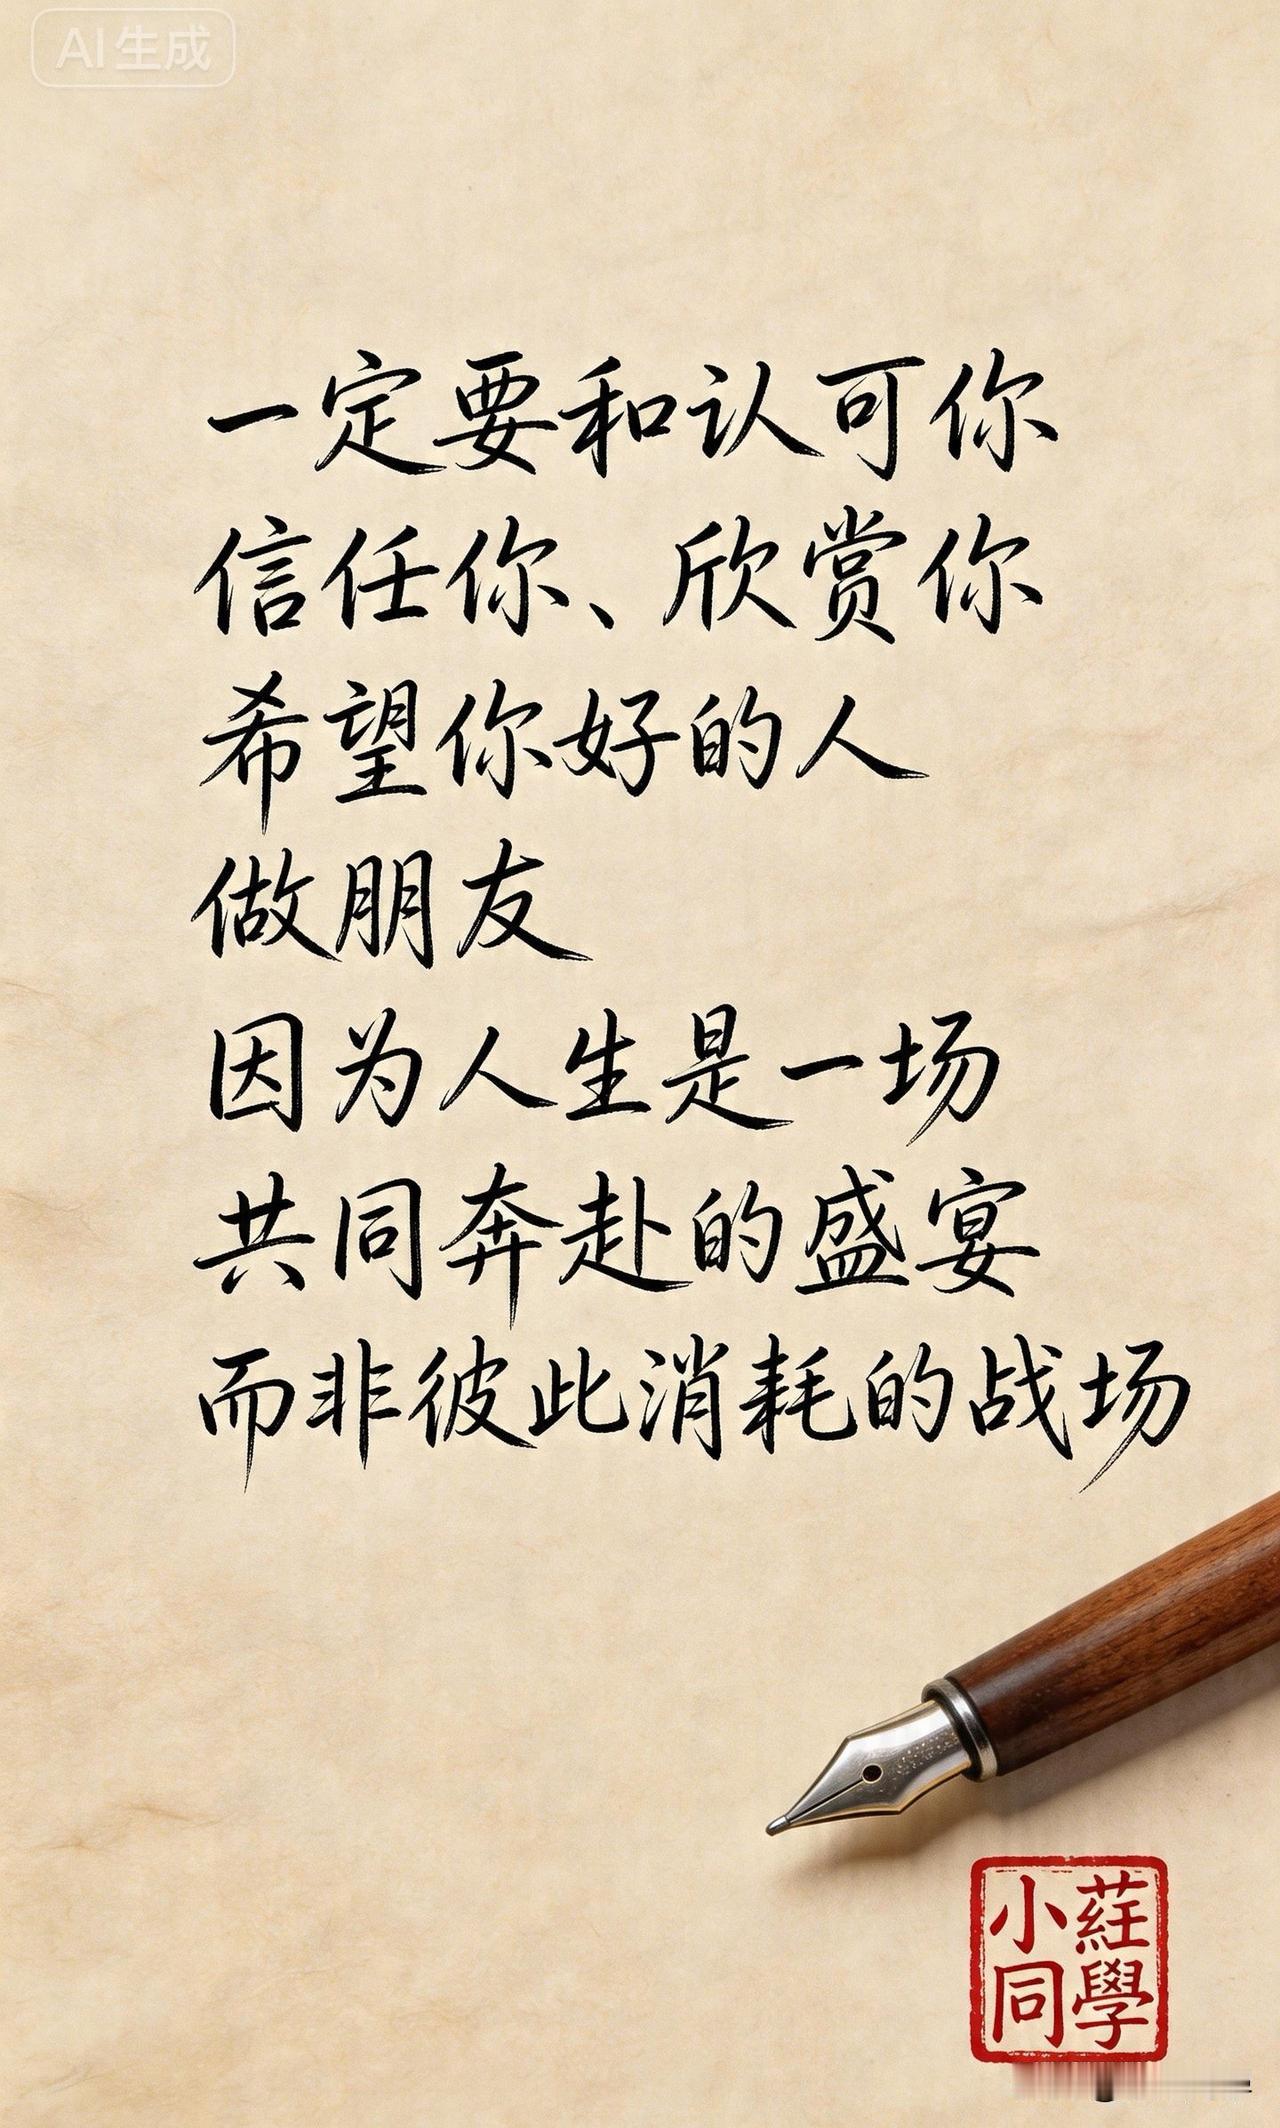 AI生成
一定要和认可你
信任你、欣赏你
希望你好的人
做朋友
因为人生是一场
共同奔赴的盛宴
而非彼此消耗的战场
小莊
同學